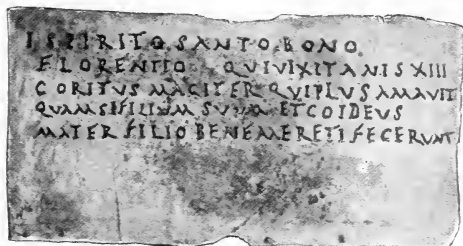 ISPIRITO SANTO BONO
FLORENTIO QVIVIXITANISXIII
CORITVS MAGITER QVIPLVSAMAVIT
QVAMSIFILIVM SVVM ETCOIDEVS
MATER FILIOBENEMERETIFECERVNT